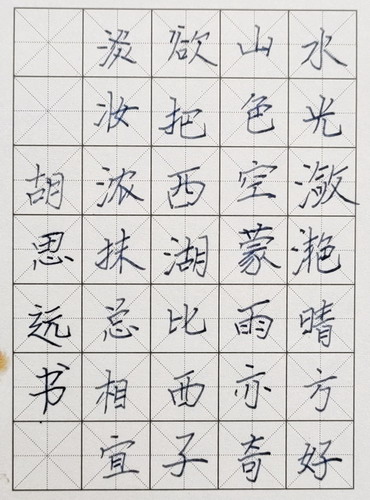 水光潋滟晴方好
山色空蒙雨亦奇
欲把西湖比西子
淡妆浓抹总相宜
胡思远书